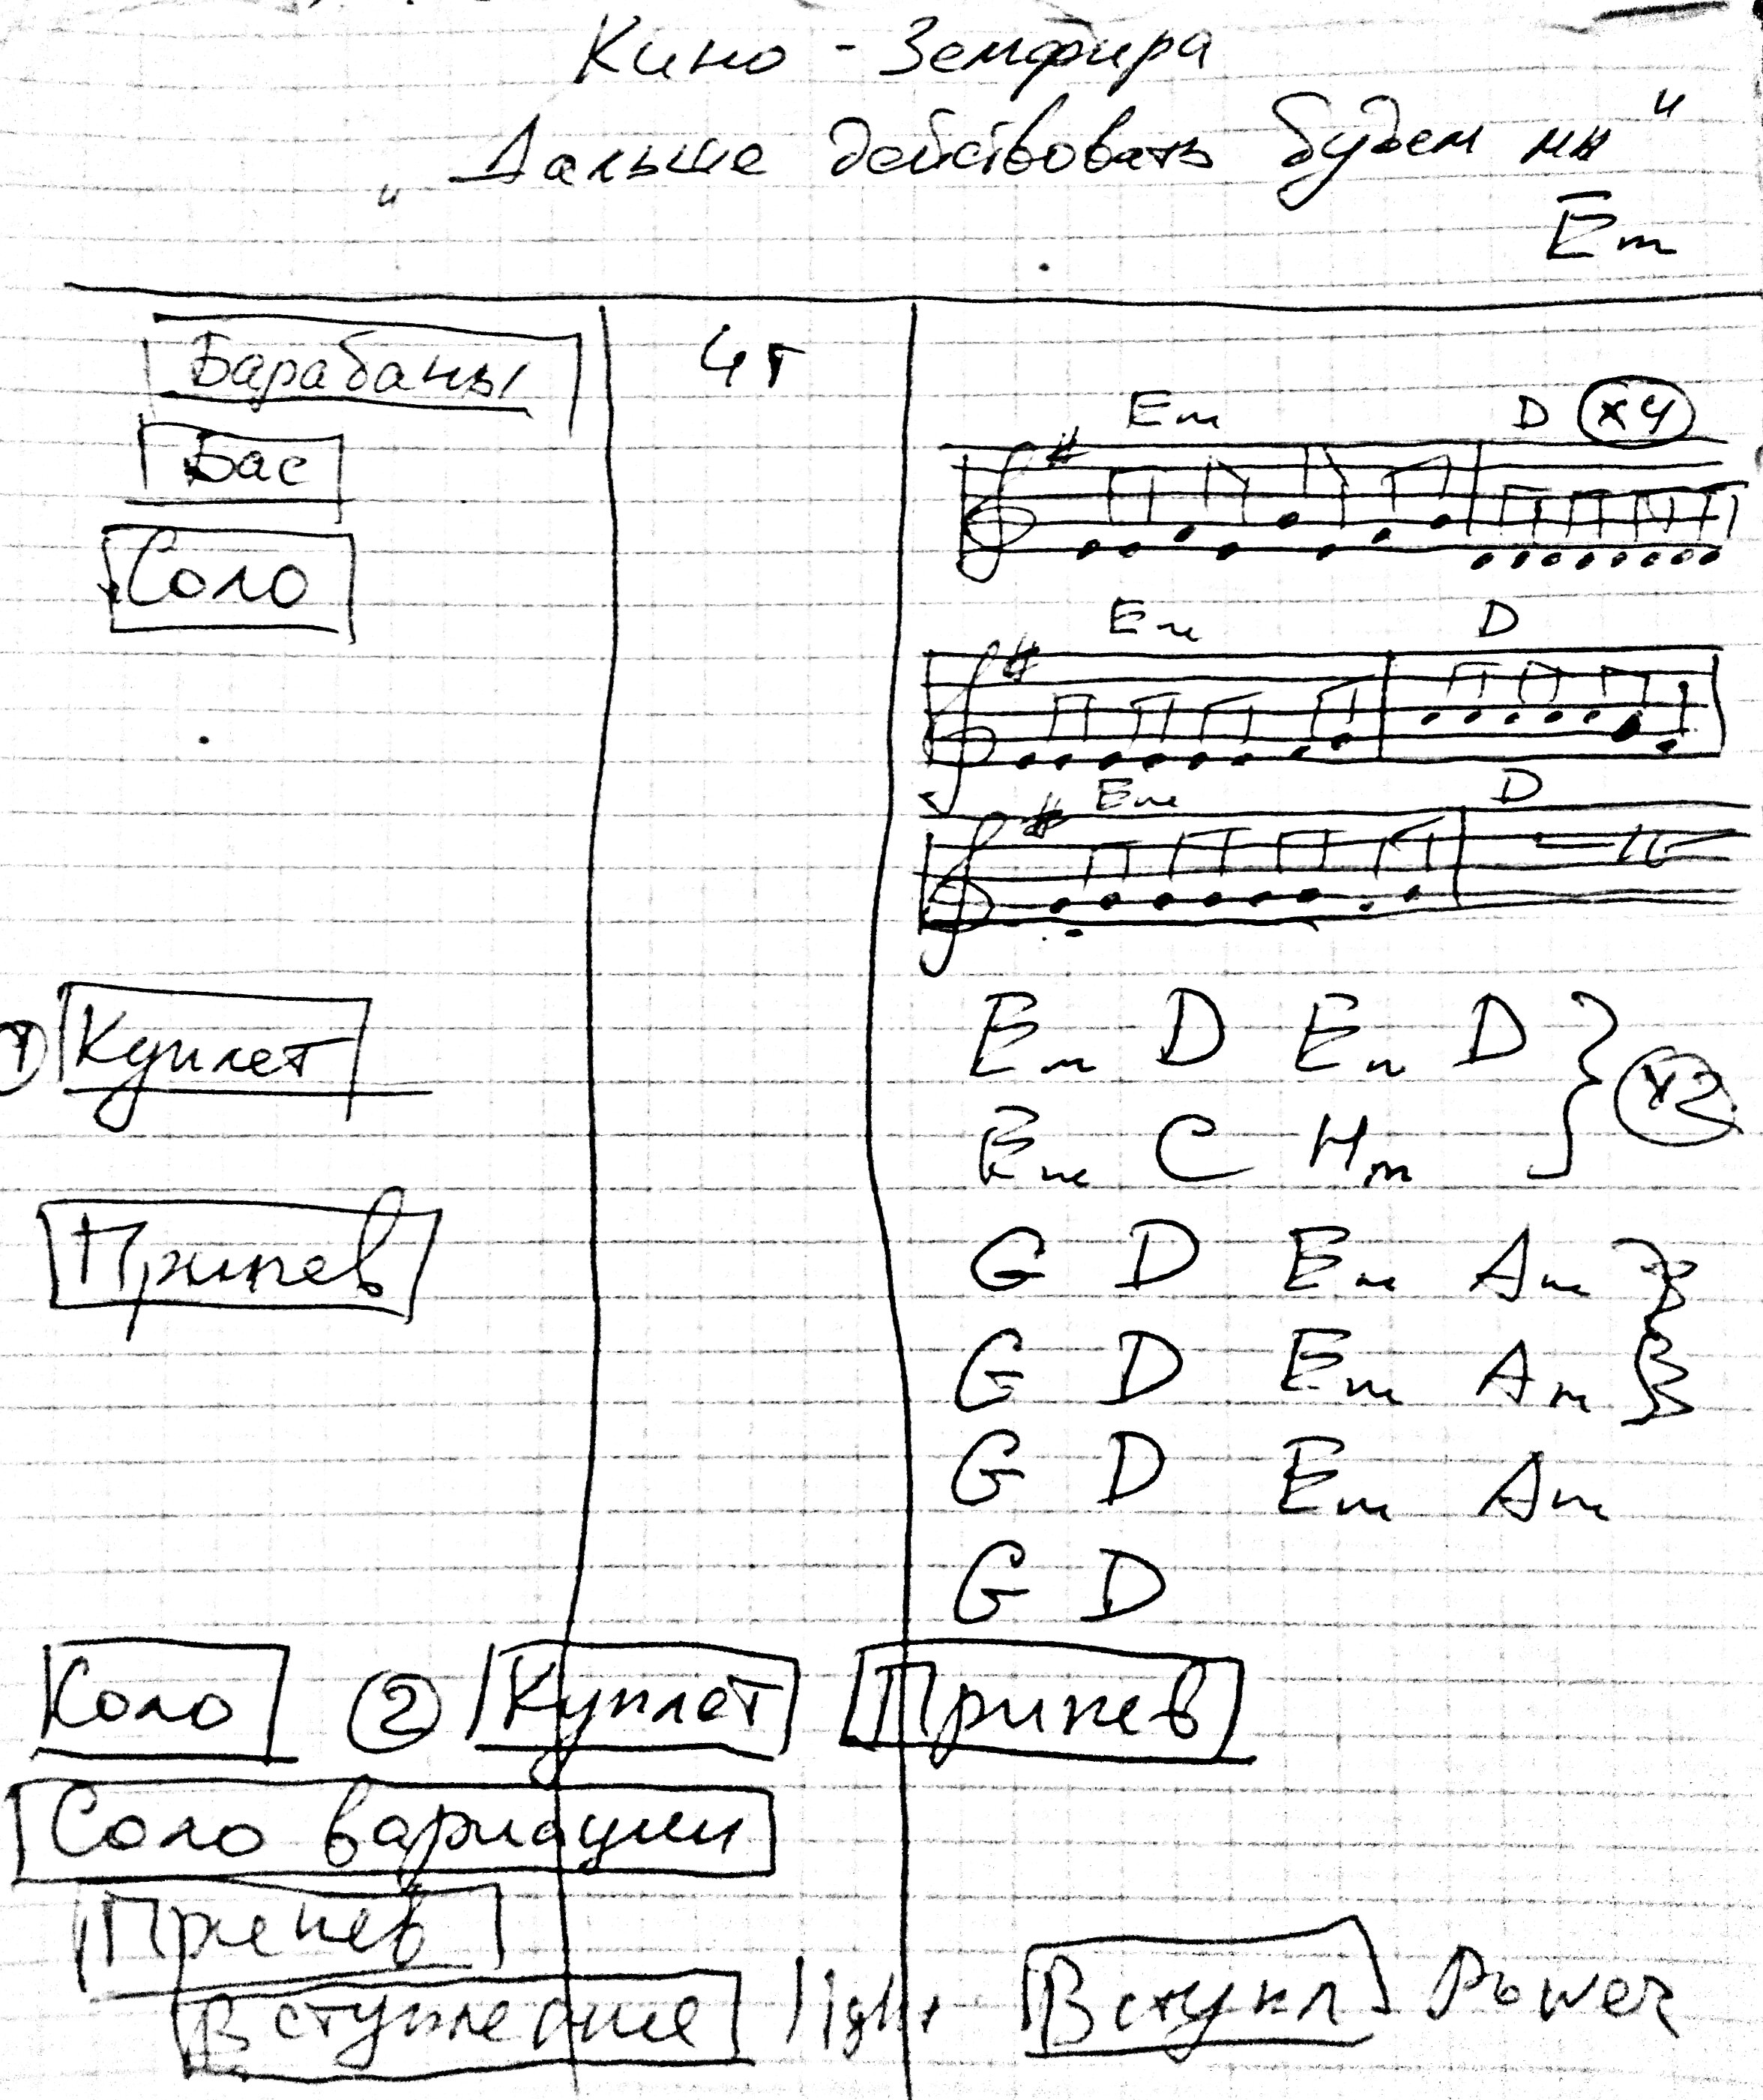 Кино - Земфира
„Дальше действовать будем мы“
Em
Барабаны 4т
Em D x4
Бас
Соло
Em D
Em D
1 Куплет Em D Em D
Em C Hm } x2
Припев G D Em Am }
G D Em Am }
G D Em Am
G D
Соло 2 Куплет Припев
Соло вариации
Припев
Вступление light Вступл Power